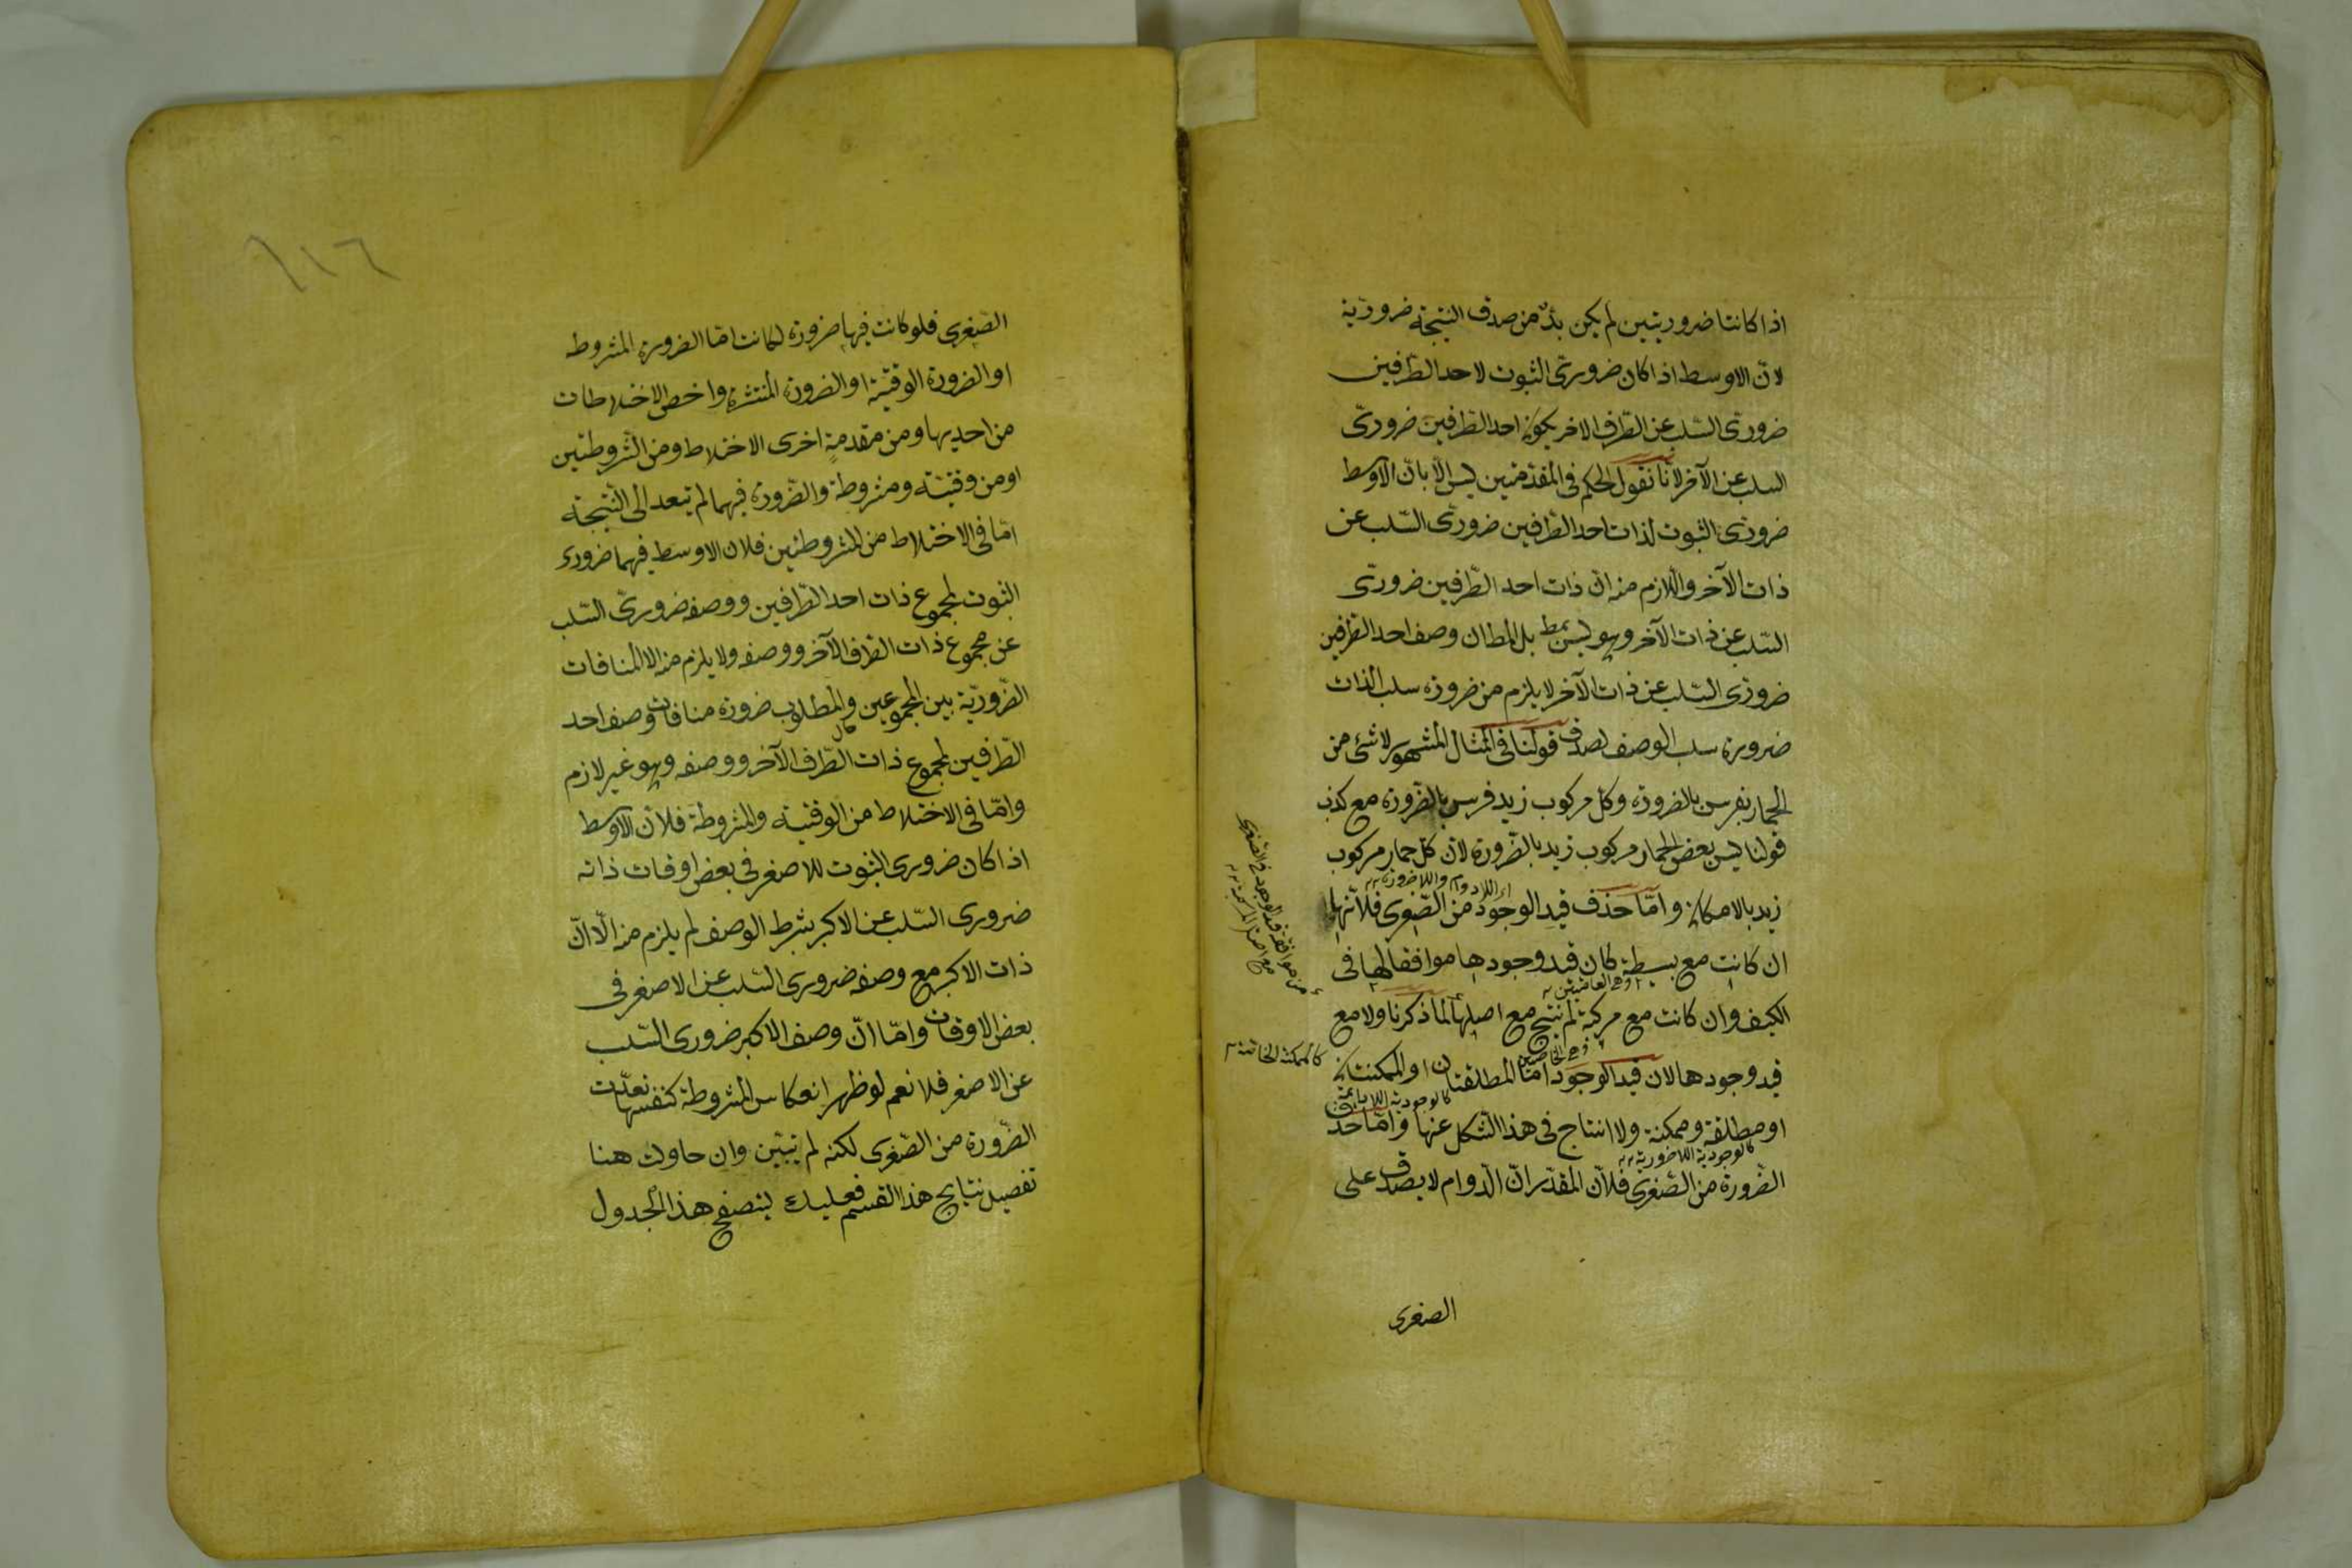 اذا كانتا ضروريتين لم يكن بدّ من صدق النتيجة ضرورية
لانّ الاوسط اذا كان ضروريّ الثبوت لاحد الطّرفين
ضروريّ السّلب عن الطّرف الاخر يكون احد الطّرفين ضروريّ
السلب عن الآخر لانّا نقول الحكم فى المقدّمتين ليس الّا بانّ الاوسط
ضروريّ الثبوت لذات احد الطّرفين ضروريّ السّلب عن
ذات الآخر واللازم منه انّ ذات احد الطّرفين ضروريّ
السّلب عن ذات الآخر وهو ليس بمط بل المط ان وصف احد الطّرفين
ضروريّ السّلب عن ذات الآخر لا يلزم من ضرورة سلب الذات
ضرورة سلب الوصف لصدق قولنا فى المثال المشهور لا شئ من
الحمار بفرس بالضرورة وكل مركوب زيد فرس بالضرورة مع كذب
قولنا ليس بعض الحمار مركوب زيد بالضّرورة لانّ كلّ حمار مركوب
اى اللادوام واللاضرورة
زيد بالامكان وامّا حذف قيد الوجود من الصّغرى فلانّها
ان كانت مع بسيطة كان قيد وجودها موافقا لها فى
وهى العامّيتين
الكيف وان كانت مع مركبة لم ينتج مع اصلها لما ذكرنا ولا مع
وهى الخاصّتين
قيد وجودها لان قيد الوجود امّا المطلقتان او الممكنتان
كالوجودية اللادائمة
او مطلقة وممكنة ولا انتاج فى هذا الشّكل عنها وامّا حذف
كالوجودية اللاضرورية
الضّرورة من الصّغرى فلانّ المقدّر انّ الدّوام لا يصدق على
من موافقة قيد الوجود فى الصّغرى
مع اصل المركبة
كالممكنة الخاصّة
الصغرى
١١٦
الصّغرى فلو كانت فيها ضرورة لكانت امّا الضرورة المشروطة
او الضرورة الوقتيّة او الضرورة المنتشرة واخصّ الاختلاطات
من احديها ومن مقدمةٍ اخرى الاختلاط ومن المشروطتين
او من وقتيّة ومشروطة والضّرورة فيهما لم تتعد الى النّتيجة
امّا فى الاختلاط من المشروطتين فلان الاوسط فيهما ضرورى
الثبوت لمجموع ذات احد الطّرفين ووصفه ضروريّ السّلب
عن مجموع ذات الطرف الآخر ووصفه ولا يلزم منه الا المنافات
الضّروريّة بين المجموعين والمطلوب ضرورة منافات وصف احد
الطّرفين لمجموع ذات الطّرف الآخر ووصفه وهو غير لازم
وامّا فى الاختلاط من الوقتيّة والمشروطة فلانّ الاوسط
اذا كان ضرورى الثبوت للاصغر فى بعض اوقات ذاته
ضرورى السّلب عن الاكبر بشرط الوصف لم يلزم منه الّا انّ
ذات الاكبر مع وصفه ضرورى السّلب عن الاصغر فى
بعض الاوقات وامّا انّ وصف الاكبر ضرورى السّلب
عن الاصغر فلا نعم لو ظهر انعكاس المشروطة كنفسها تعدّت
الضّرورة من الصّغرى لكنه لم يتبيّن وان حاولت هنا
تفصيل نتايج هذا القسم فعليك بتصفح هذا الجدول